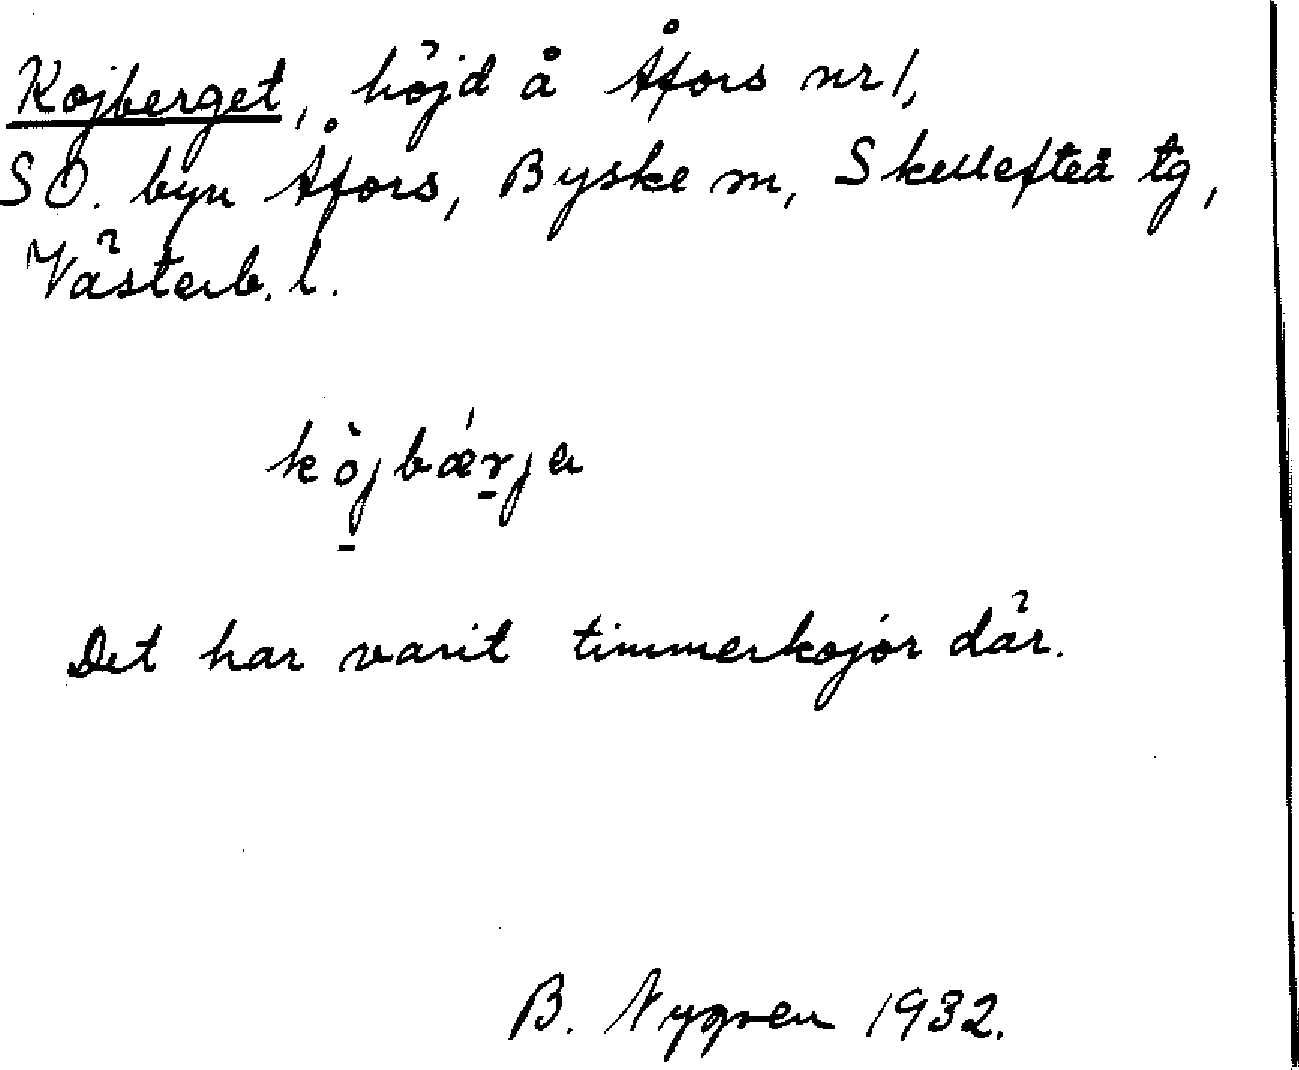 Kojberget, höjd å Åfors nr 1,
SO. byn Åfors, Byske sn, Skellefteå tg,
Västerb. l.
kòjbǽrja
Det har varit timmerkojor där.
B. Nygren 1932.